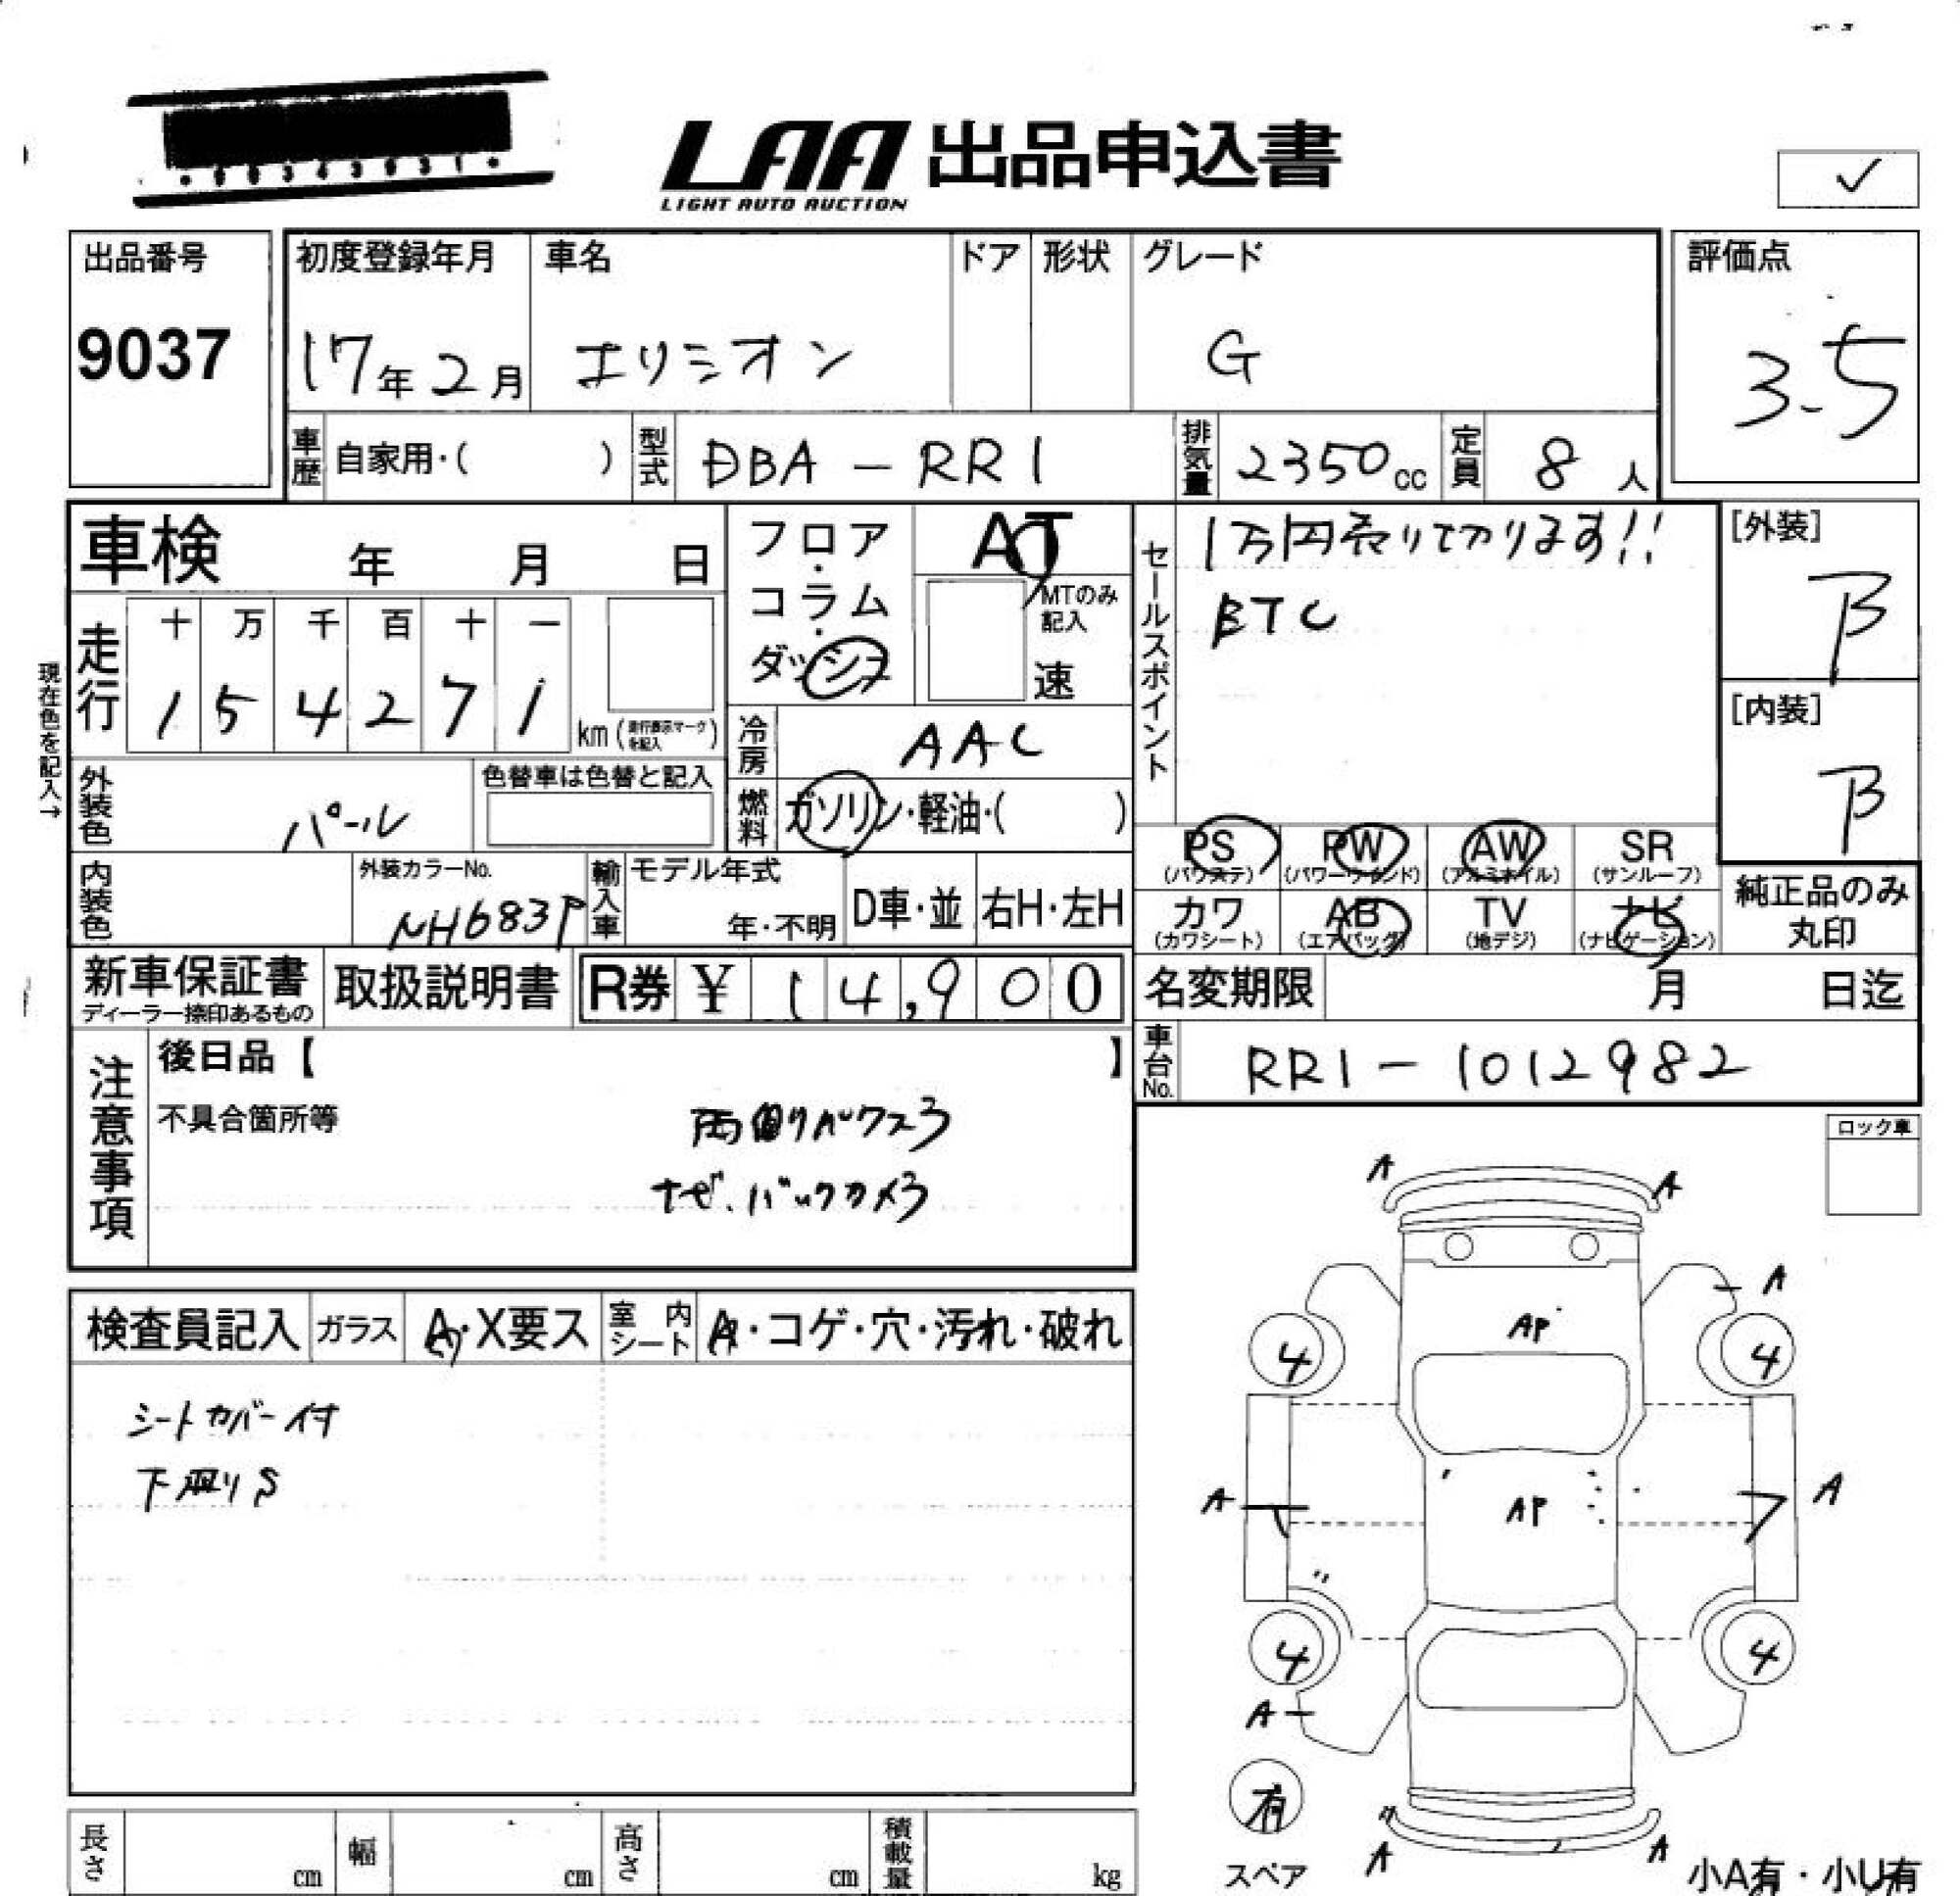 LAA 出品申込書
LIGHT AUTO AUCTION
✓
出品番号
9037
初度登録年月
17年2月
車名
エリシオン
ドア
形状
グレード
G
評価点
3.5
車歴
自家用・( )
型式
DBA-RR1
排気量
2350cc
定員
8人
車検 年 月 日
フロア・コラム・ダッシュ
AT
MTのみ記入
速
セールスポイント
1万円売りきります!!
ETC
[外装]
B
[内装]
B
現在色を記入→
走行
十 万 千 百 十 一
1 5 4 2 7 1
km(走行表示マークを記入)
冷房
AAC
外装色
パール
色替車は色替と記入
燃料
ガソリン・軽油・( )
PS (パワステ)
PW (パワーウインド)
AW (アルミホイル)
SR (サンルーフ)
カワ (カワシート)
AB (エアバッグ)
TV (地デジ)
ナビ (ナビゲーション)
純正品のみ丸印
内装色
外装カラーNo.
NH683P
輸入車
モデル年式
年・不明
D車・並
右H・左H
新車保証書
ディーラー捺印あるもの
取扱説明書
R券 ¥ 14,900
名変期限 月 日迄
車台No.
RR1-1012982
注意事項
後日品【 】
不具合箇所等
両側パワスラ
ナビ、バックカメラ
ロック車
検査員記入
ガラス
A・X要ス
室内シート
A・コゲ・穴・汚れ・破れ
シートカバー付
下廻りS
A A
A
AP
4 4
A AP A
4 4
A
有
スペア
A A
小A有・小U有
長さ cm
幅 cm
高さ cm
積載量 kg